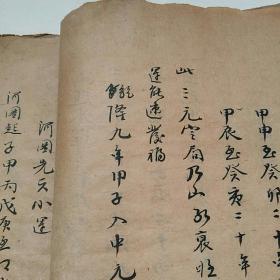 甲申至癸卯二十
甲辰至癸亥二十年
此三元定局乃山水衰旺
運能速發福
乾隆九年甲子入中元
河圖先天小運
河圖起子甲丙戊庚